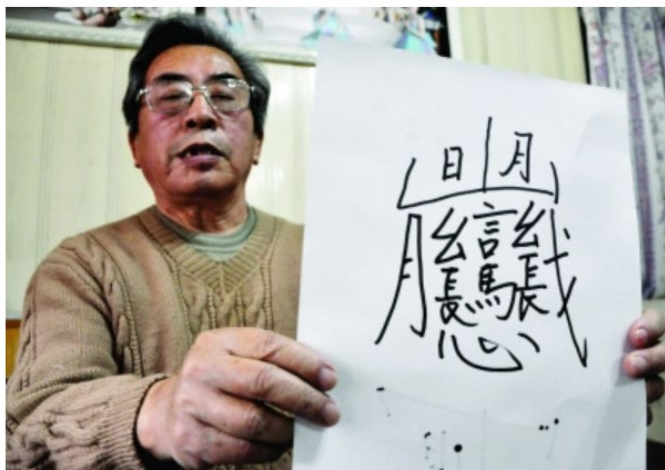 日月
月幺言幺戈
長馬長
心